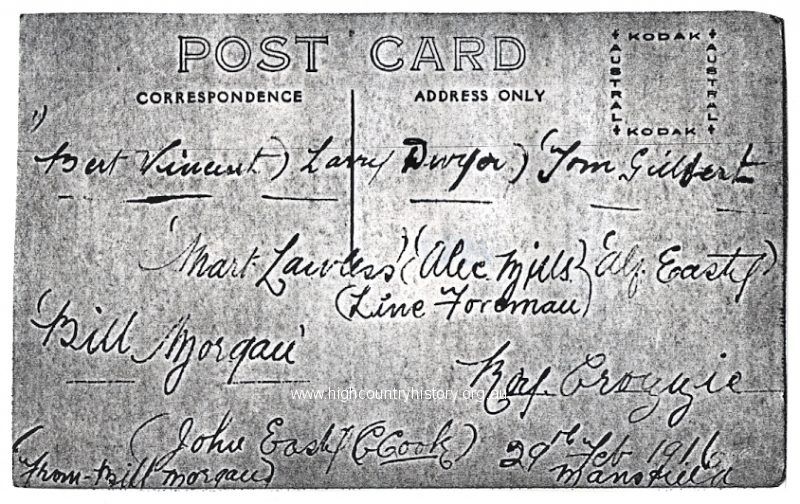 POST CARD
CORRESPONDENCE
ADDRESS ONLY
KODAK
AUSTRAL
AUSTRAL
KODAK
Bert Vincent) Larry Dwyer) (Tom Gilbert
'Mart Lawless' (Alec Mills) Alf. East)
(Line Foreman)
'Bill Morgan'
Ray
www.highcountryhistory.org.au
(John East) (C Cook) 29th Feb 1916
(From Bill Morgan) Mansfield